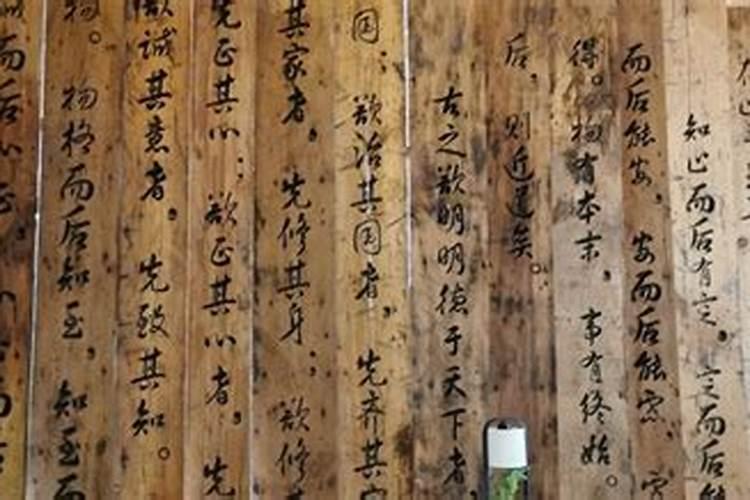 知止而后有定，定而后能
而后能安，安而后能虑，虑
得。物有本末，事有终始。
后，则近道矣。
古之欲明明德于天下者，
国；欲治其国者，先齐其家
其家者，先修其身；欲修其
先正其心；欲正其心者，先
欲诚其意者，先致其知。
物。物格而后知至，知至而
诚而后心正，